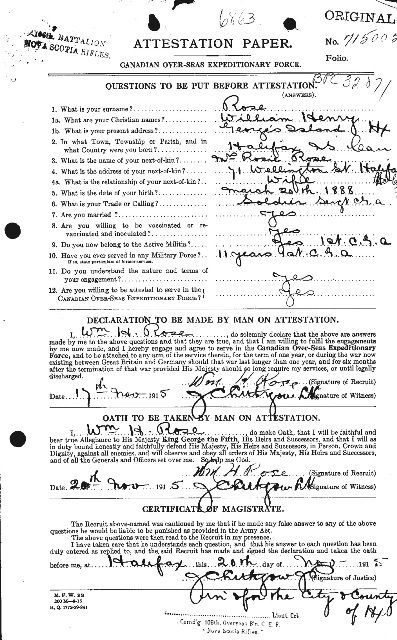 6863
ORIGINAL
106th BATTALION
NOVA SCOTIA RIFLES.
ATTESTATION PAPER.
No. 715003
Folio.
CANADIAN OVER-SEAS EXPEDITIONARY FORCE.
QUESTIONS TO BE PUT BEFORE ATTESTATION.
(ANSWERS).
1. What is your surname? Rose
1a. What are your Christian names? William Henry
1b. What is your present address? George's Island Hx
2. In what Town, Township or Parish, and in what Country were you born? Halifax NS Can
3. What is the name of your next-of-kin? Mrs Rosie Rose
4. What is the address of your next-of-kin? 71 Wellington St. Halifax
4a. What is the relationship of your next-of-kin? Wife
5. What is the date of your birth? March 20th 1888
6. What is your Trade or Calling? Soldier Sergt
7. Are you married? Yes
8. Are you willing to be vaccinated or re-vaccinated and inoculated? Yes
9. Do you now belong to the Active Militia? Yes 1st C.G.A
10. Have you ever served in any Military Force? 11 years 1st C.G.A
If so, state particulars of former service.
11. Do you understand the nature and terms of your engagement? Yes
12. Are you willing to be attested to serve in the CANADIAN OVER-SEAS EXPEDITIONARY FORCE? Yes
DECLARATION TO BE MADE BY MAN ON ATTESTATION.
I, Wm H. Rose, do solemnly declare that the above are answers
made by me to the above questions and that they are true, and that I am willing to fulfil the engagements
by me now made, and I hereby engage and agree to serve in the Canadian Over-Seas Expeditionary
Force, and to be attached to any arm of the service therein, for the term of one year, or during the war now
existing between Great Britain and Germany should that war last longer than one year, and for six months
after the termination of that war provided His Majesty should so long require my services, or until legally
discharged.
Wm H Rose (Signature of Recruit)
Date 17th Nov 1915 (Signature of Witness)
OATH TO BE TAKEN BY MAN ON ATTESTATION.
I, Wm H. Rose, do make Oath, that I will be faithful and
bear true Allegiance to His Majesty King George the Fifth, His Heirs and Successors, and that I will as
in duty bound honestly and faithfully defend His Majesty, His Heirs and Successors, in Person, Crown and
Dignity, against all enemies, and will observe and obey all orders of His Majesty, His Heirs and Successors,
and of all the Generals and Officers set over me. So help me God.
Wm H Rose (Signature of Recruit)
Date 20th Nov 1915 (Signature of Witness)
CERTIFICATE OF MAGISTRATE.
The Recruit above-named was cautioned by me that if he made any false answer to any of the above
questions he would be liable to be punished as provided in the Army Act.
The above questions were then read to the Recruit in my presence.
I have taken care that he understands each question, and that his answer to each question has been
duly entered as replied to, and the said Recruit has made and signed the declaration and taken the oath
before me, at Halifax this 20th day of Nov 1915
(Signature of Justice)
for the City & County
of Hx
M. F. W. 23
Lieut. Col.
Comdg 106th. Overseas Bn. C E F.
"Nova Scotia Rifles"